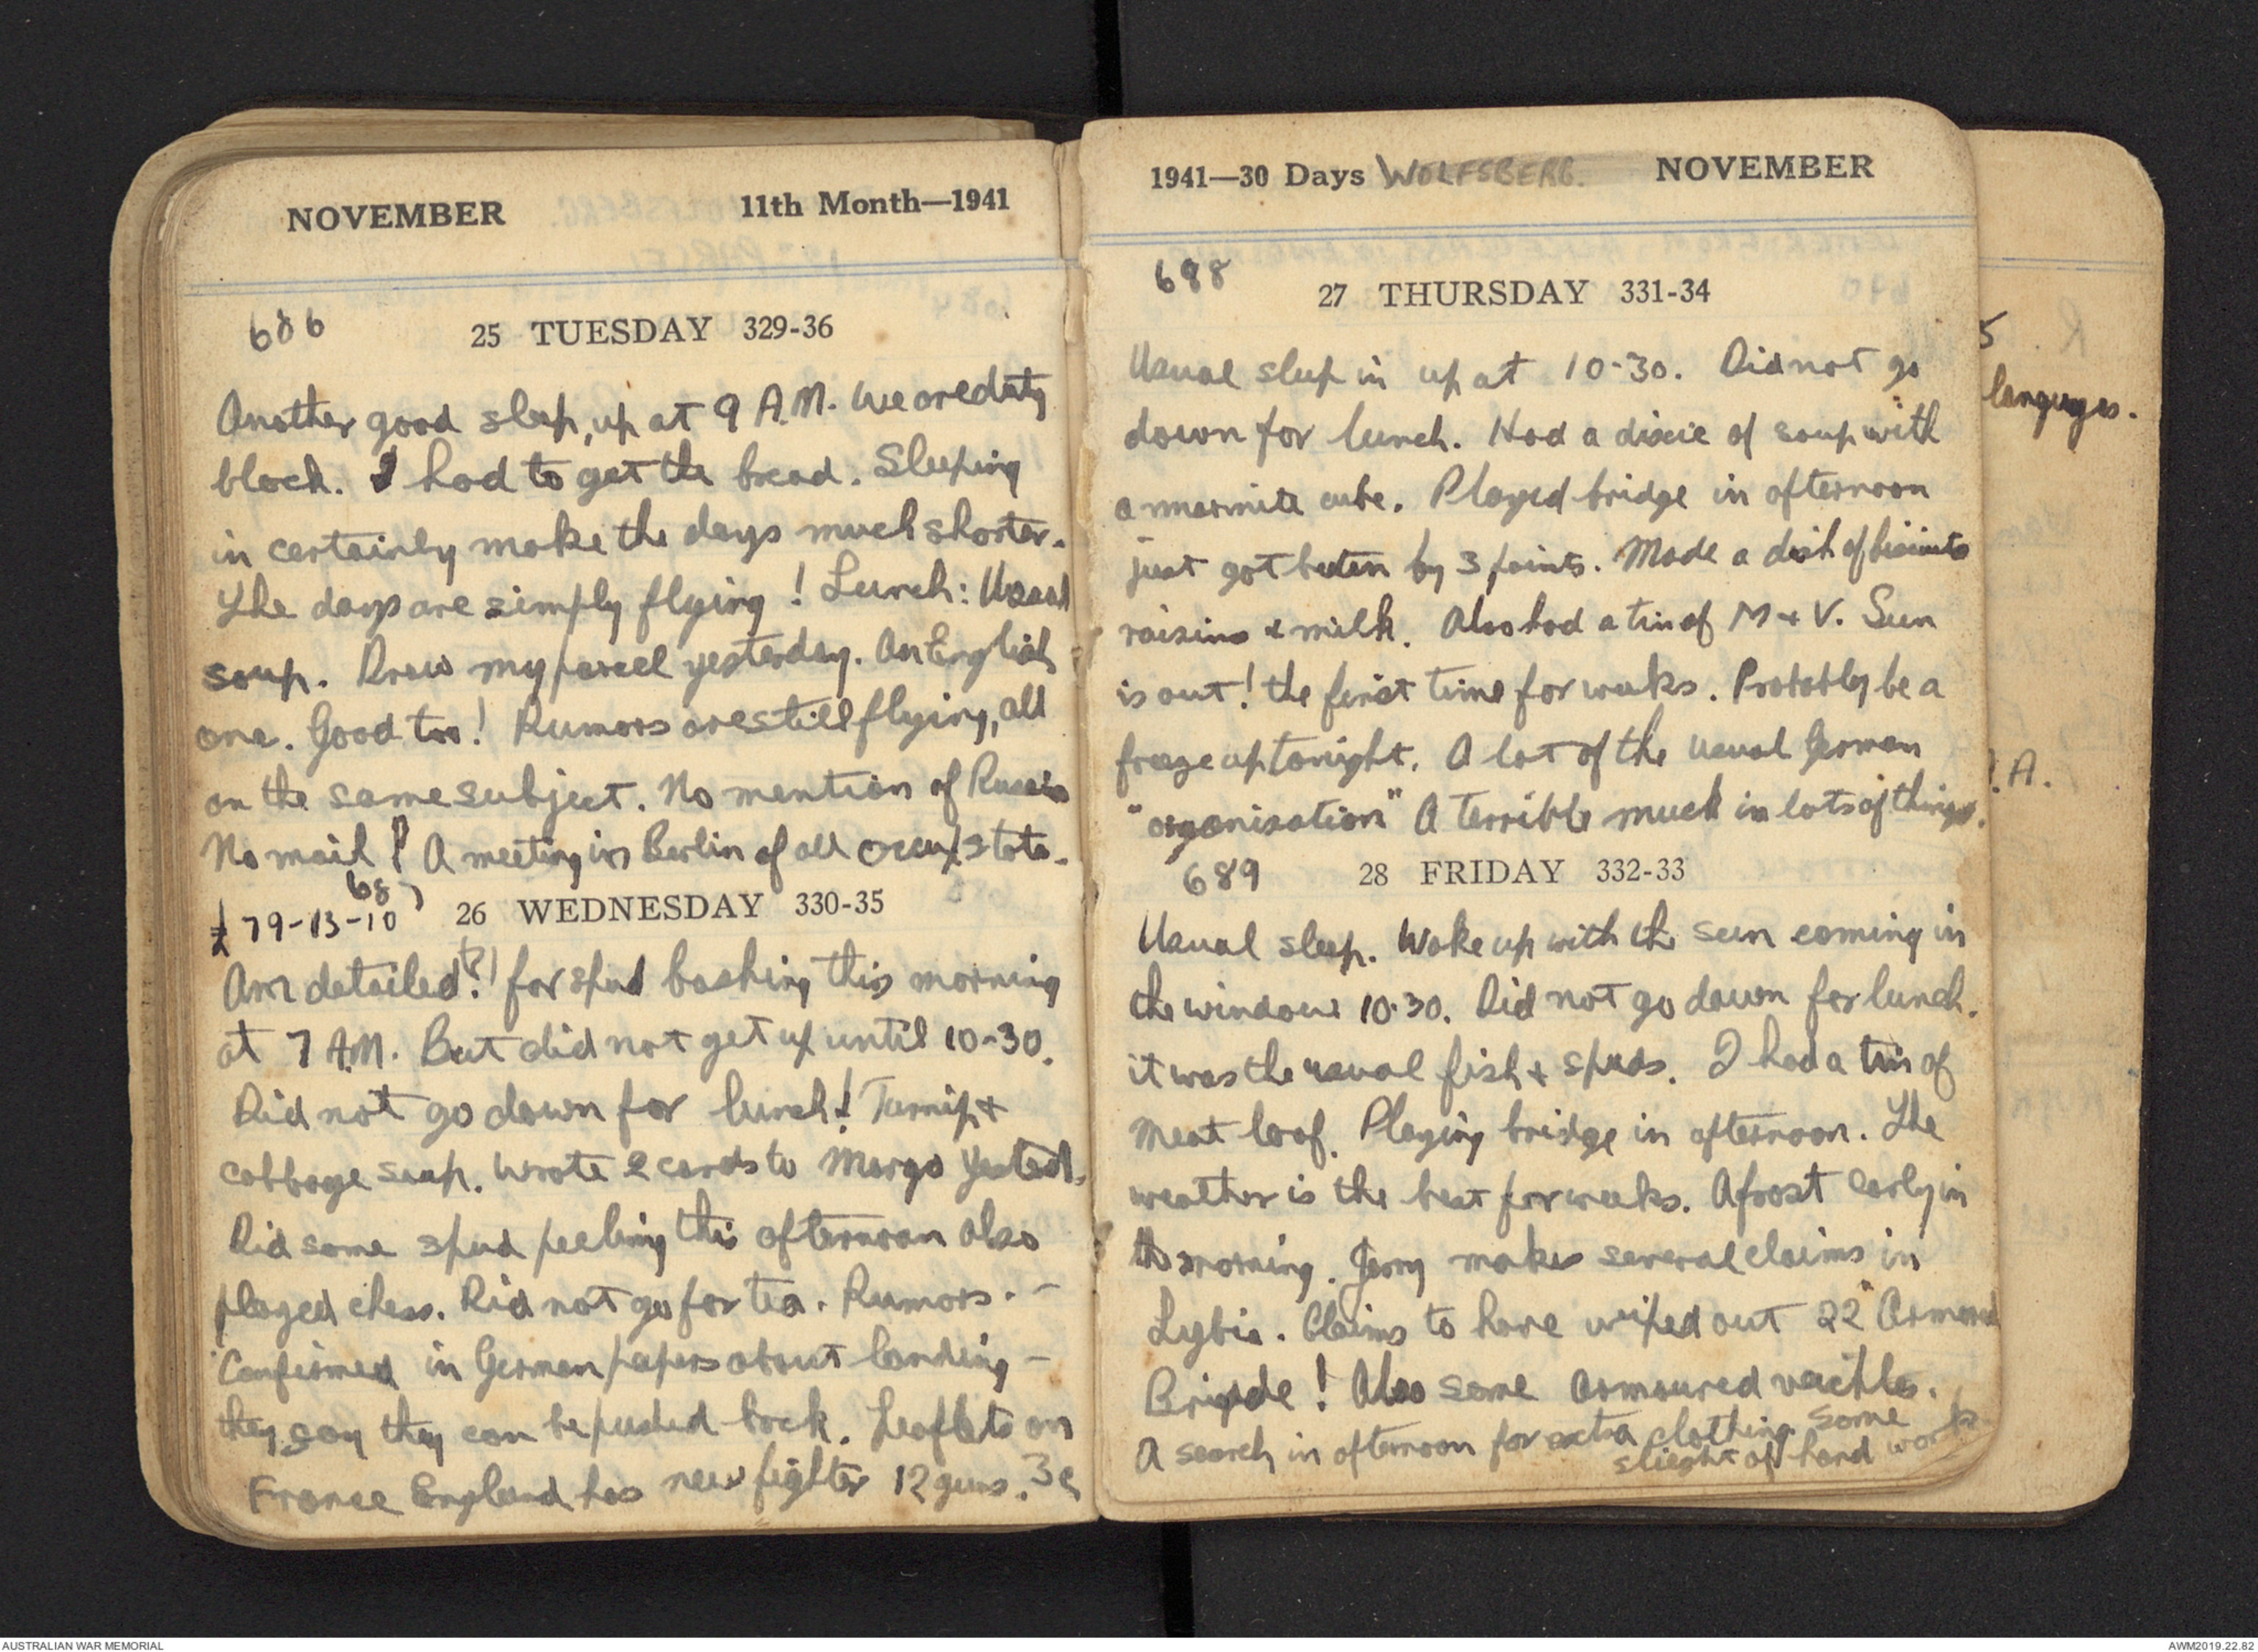 NOVEMBER 11th Month—1941
686 25 TUESDAY 329-36
Another good sleep, up at 9 A.M. We are duty
block. I had to get the bread. Sleeping
in certainly make the days much shorter.
The days are simply flying! Lunch: Usual
soup. Drew my parcel yesterday. An English
one. Good too! Rumors are still flying, all
on the same subject. No mention of Russia
No mail! A meeting in Berlin of all occup. stats.
687
£79-13-10 26 WEDNESDAY 330-35
Am detailed (?) for spud bashing this morning
at 7 A.M. But did not get up until 10-30.
Did not go down for lunch! Turnip &
cabbage soup. Wrote 2 cards to Margo Yested.
Did some spud peeling this afternoon also
played chess. Did not go for tea. Rumors. -
Confirmed in German papers about landing -
they say they can be pushed back. Leaflets on
France England has new fighter 12 guns. 3
1941—30 Days WOLFSBERG. NOVEMBER
688 27 THURSDAY 331-34
Usual sleep in up at 10-30. Did not go
down for lunch. Had a dixie of soup with
a marmite cube. Played bridge in afternoon
just got beaten by 3 points. Made a dish of biscuits
raisins & milk. Also had a tin of M & V. Sun
is out! the first time for weeks. Probably be a
freeze up tonight. A lot of the usual German
"organisation" A terrible muck in lots of things.
689 28 FRIDAY 332-33
Usual sleep. Woke up with the sun coming in
the window 10.30. Did not go down for lunch.
it was the usual fish & spuds. I had a tin of
meat loaf. Playing bridge in afternoon. The
weather is the best for weeks. A frost early in
the morning. Jerry makes several claims in
Lybia. Claims to have wiped out 22" Armored
Brigade! Also some armoured veichles.
A search in afternoon for extra clothing some
slieght of hand work
5
languages.
.A.
AUSTRALIAN WAR MEMORIAL AWM2019.22.82